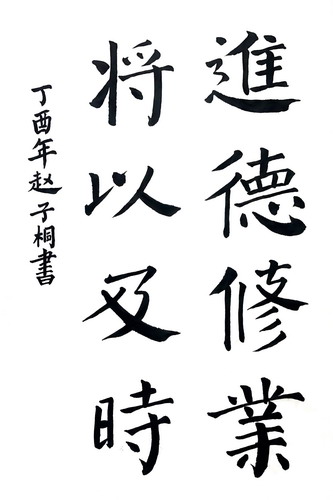 進德修業
将以及時
丁酉年赵子桐書